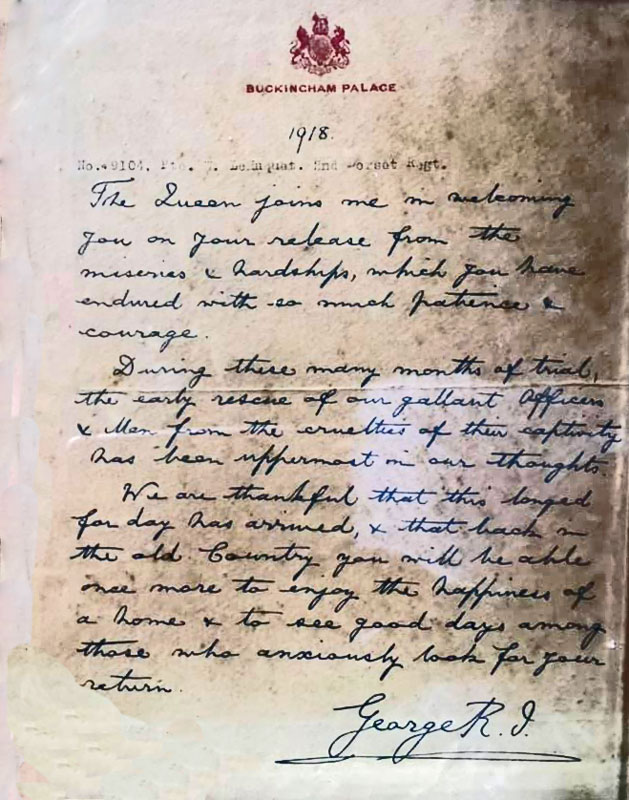 BUCKINGHAM PALACE
1918.
No. 49104. Pte. 2nd Dorset Regt.
The Queen joins me in welcoming
you on your release from the
miseries & hardships, which you have
endured with so much patience &
courage.
During these many months of trial,
the early rescue of our gallant Officers
& Men from the cruelties of their captivity
has been uppermost in our thoughts.
We are thankful that this longed
for day has arrived, & that back in
the old Country you will be able
once more to enjoy the happiness of
a home & to see good days among
those who anxiously look for your
return.
George R. I.